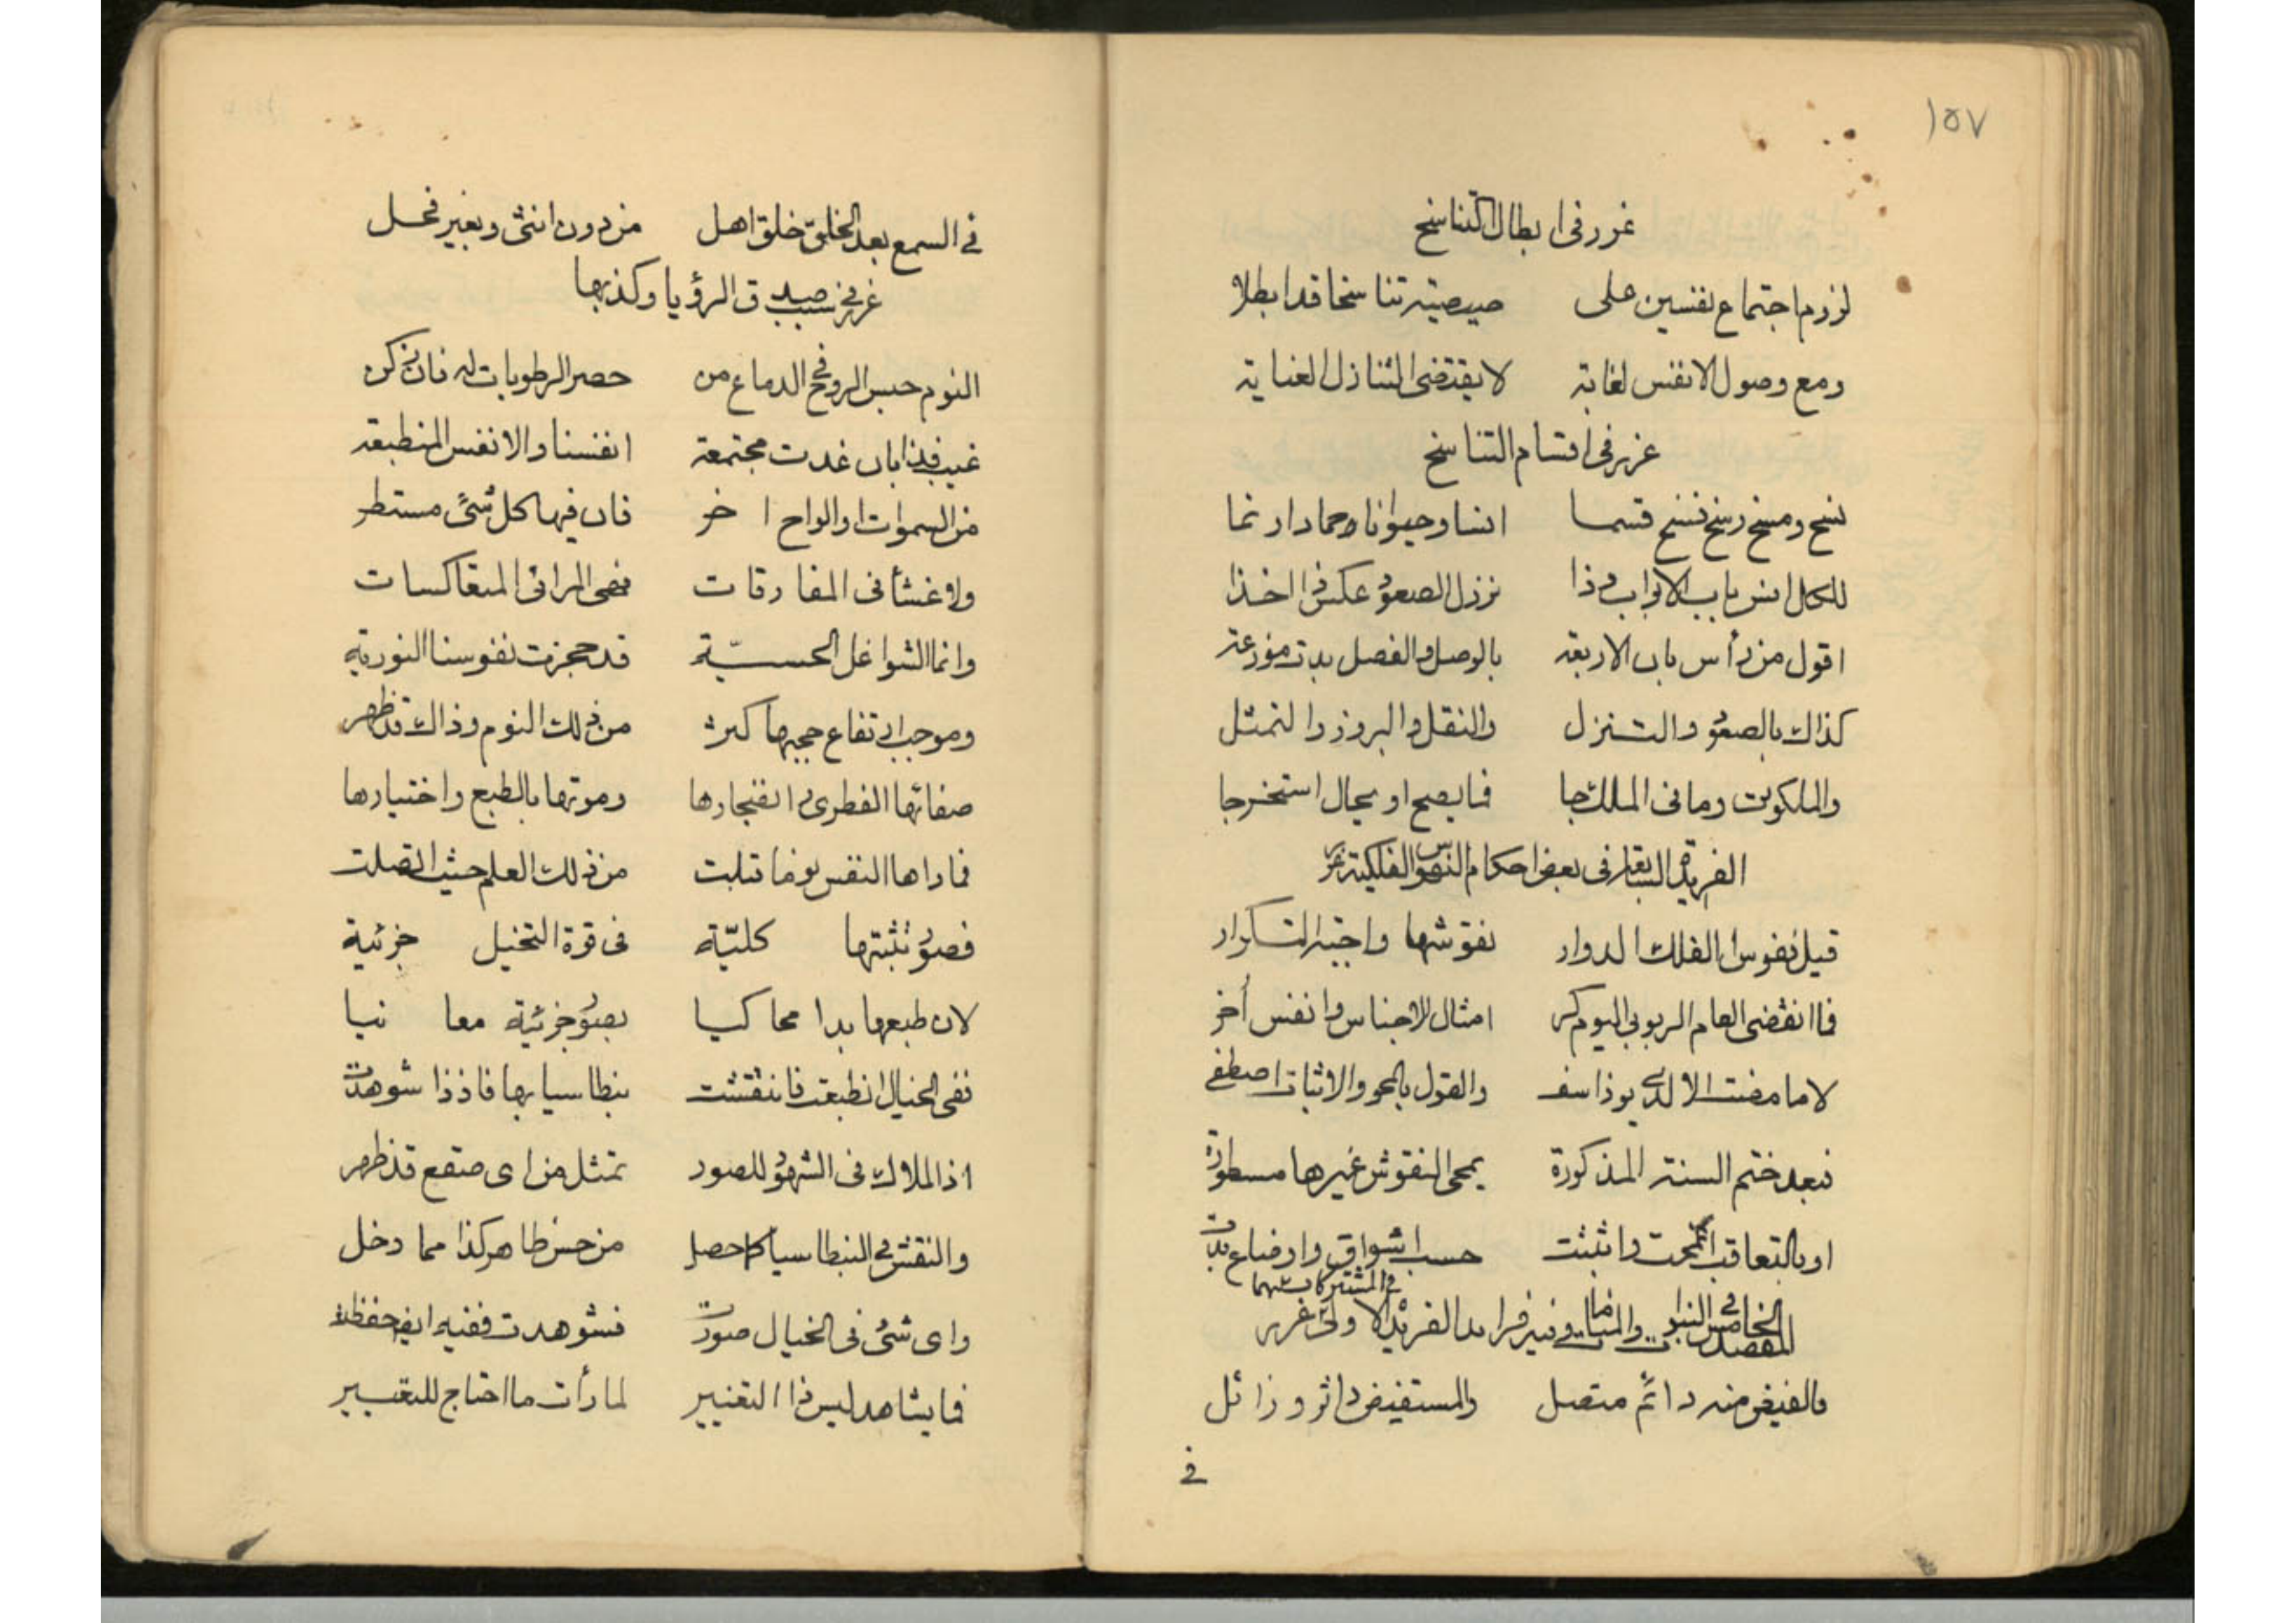 ١٥٧
غرر فى ابطال التناسخ
لزوم اجتماع نفسين على صيصية تناسخا قد ابطلا
ومع وصول الانفس لغاية لا يقتضى التنازل العناية
غرر فى اقسام التناسخ
نسخ ومسخ رسخ فسخ قسما انسا وحيوانا وجمادا ونما
للكامل انس باب الابواب وذا نزول الصعود عكس ذا اخذا
اقول من رأس بان الاربعة بالوصل والفصل بدت موزعة
كذاك بالصعود والتنزل والنقل والبروز والتمثل
والملكوت وما فى الملك جا فما يصح او يحال استخرجا
الفريدة السابعة فى بعض احكام النفوس الفلكية غرر
قيل نفوس الفلك الدوار نقوشها واجبة التكرار
فما انقضى العام الربوبى اليوم كر امثال الاجناس وانفس أخر
لا ما مضت الا لدى يوذاسف والقول بالمحو والاثبات اصطفى
فبعد ختم السنة المذكورة يمحى النقوش غيرها مسطورة
او بالتعاقب انمحت واثبتت حسب اشواق واوضاع بدت
المقصد الخامس فى النبوات والمنامات وفيه فرايد الفريدة الاولى فى المشتركات بينهما غرر
فالفيض منه دائم متصل والمستفيض داثر وزائل
فى
فى السمع بعد الخلق خلق اهل من دون انثى وبغير فحل
غرر فى سبب صدق الرؤيا وكذبها
النوم حبس الروح فى الدماغ من حصر الرطوبات له فان يكن
غيب فذا بان غدت مجتمعة انفسنا والانفس المنطبعة
من السموات او الواح اخر فان فيها كل شىء مستطر
ولا غشأ فى المفارقات فهى المرائى المتعاكسات
وانما الشواغل الحسيّة قد حجزت نفوسنا النورية
وموجب ارتفاع حجبها كثر من ذلك النوم وذاك قد ظهر
صفائها الفطرى وانفجارها وموتها بالطبع واختيارها
فما راها النفس يوما قلبت من ذلك العلم حيث اتصلت
فصور تثبتها كليّة فى قوة التخيل جزئية
لان طبعها بدا محاكيا بصور جزئية معانيا
ففى الخيال انطبعت فانتقشت بنطاسيا بها فاذا شوهدت
اذ الملاك فى الشهود للصور تمثل من اى صقع قد ظهر
والنقش فى البنطاسيا كما حصل من حس ظاهر كذا مما دخل
واى شىء فى الخيال صورت فشوهدت ففيه ايض حفظت
فما يشاهد ليس ذا التغيير لما رأت ما احتاج للتعبير